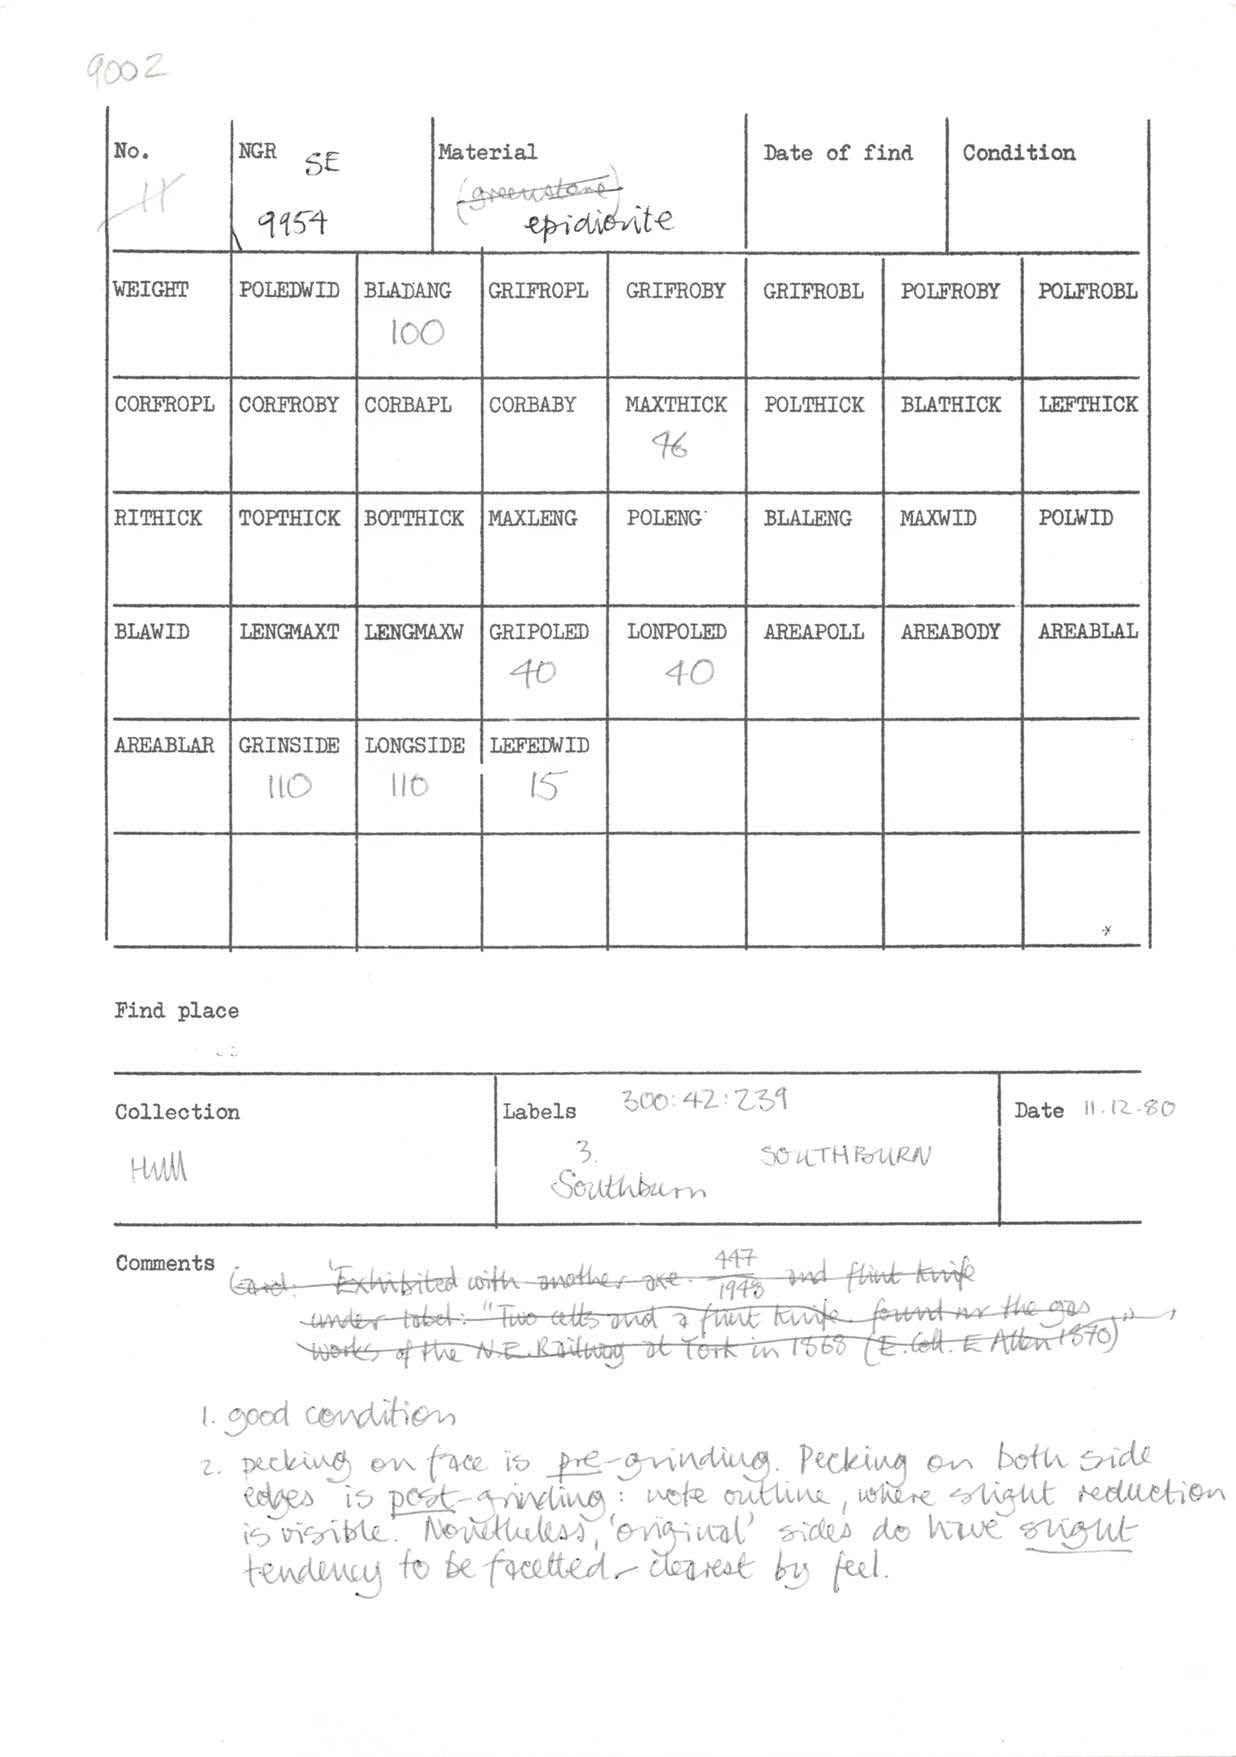 9002
No. NGR SE Material Date of find Condition
11 (greenstone)
9954 epidiorite
WEIGHT POLEDWID BLADANG GRIFROPL GRIFROBY GRIFROBL POLFROBY POLFROBL
100
CORFROPL CORFROBY CORBAPL CORBABY MAXTHICK POLTHICK BLATHICK LEFTHICK
46
RITHICK TOPTHICK BOTTHICK MAXLENG POLENG BLALENG MAXWID POLWID
BLAWID LENGMAXT LENGMAXW GRIPOLED LONPOLED AREAPOLL AREABODY AREABLAL
40 40
AREABLAR GRINSIDE LONGSIDE LEFEDWID
110 110 15
Find place
Collection Labels 300:42:239 Date 11.12.80
Hull 3. SOUTHBURN
Southburn
Comments Card: 'Exhibited with another axe 447/1948 and flint knife
under label: "Two celts and a flint knife found nr the gas
works of the N.E. Railway at York in 1868 (E. Coll. E Allen 1870)"'
1. good condition
2. pecking on face is pre-grinding. Pecking on both side
edges is post-grinding: note outline, where slight reduction
is visible. Nonetheless, 'original' sides do have slight
tendency to be facetted – clearest by feel.